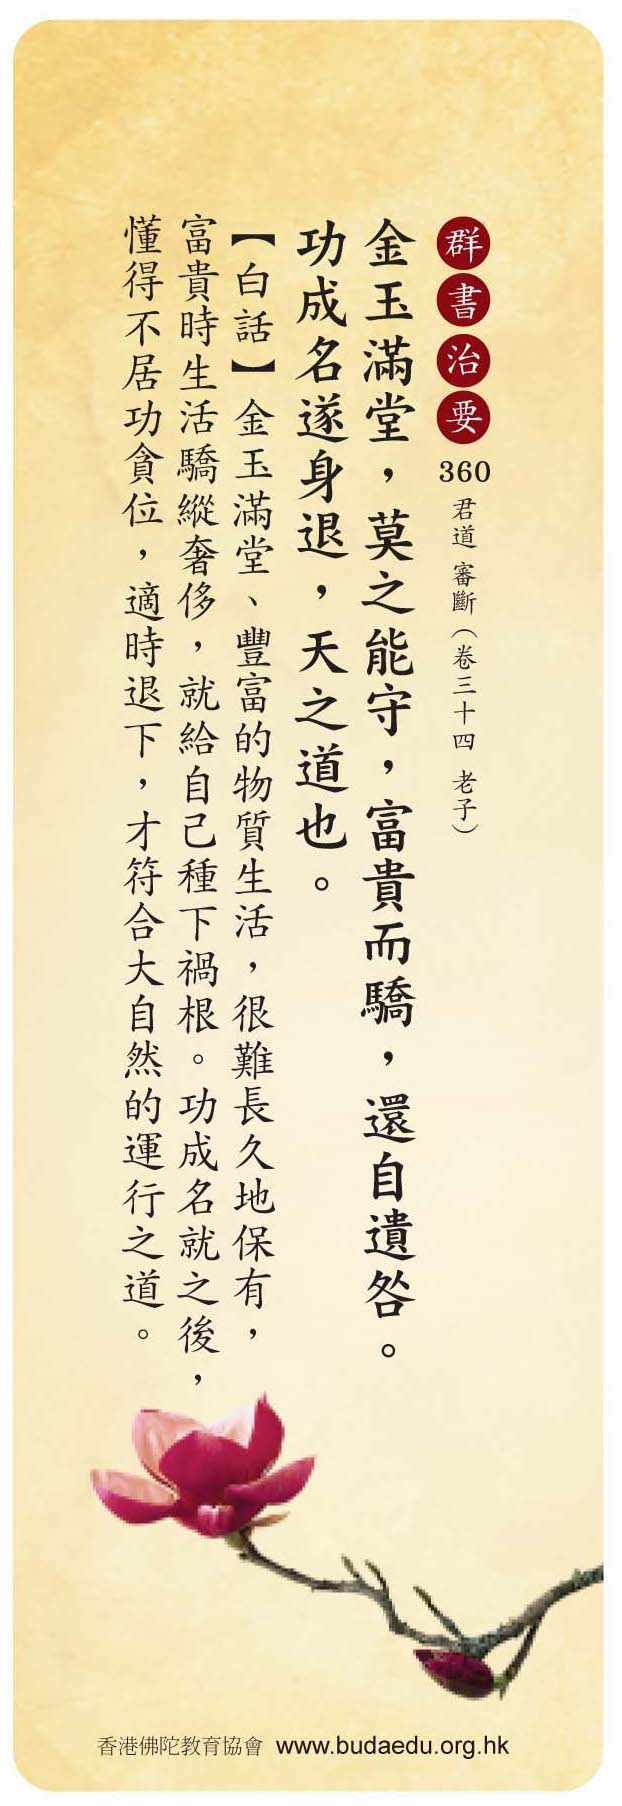 群書治要
360 君道 審斷（卷三十四 老子）
金玉滿堂，莫之能守，富貴而驕，還自遺咎。
功成名遂身退，天之道也。
【白話】金玉滿堂、豐富的物質生活，很難長久地保有，
富貴時生活驕縱奢侈，就給自己種下禍根。功成名就之後，
懂得不居功貪位，適時退下，才符合大自然的運行之道。
香港佛陀教育協會 www.budaedu.org.hk